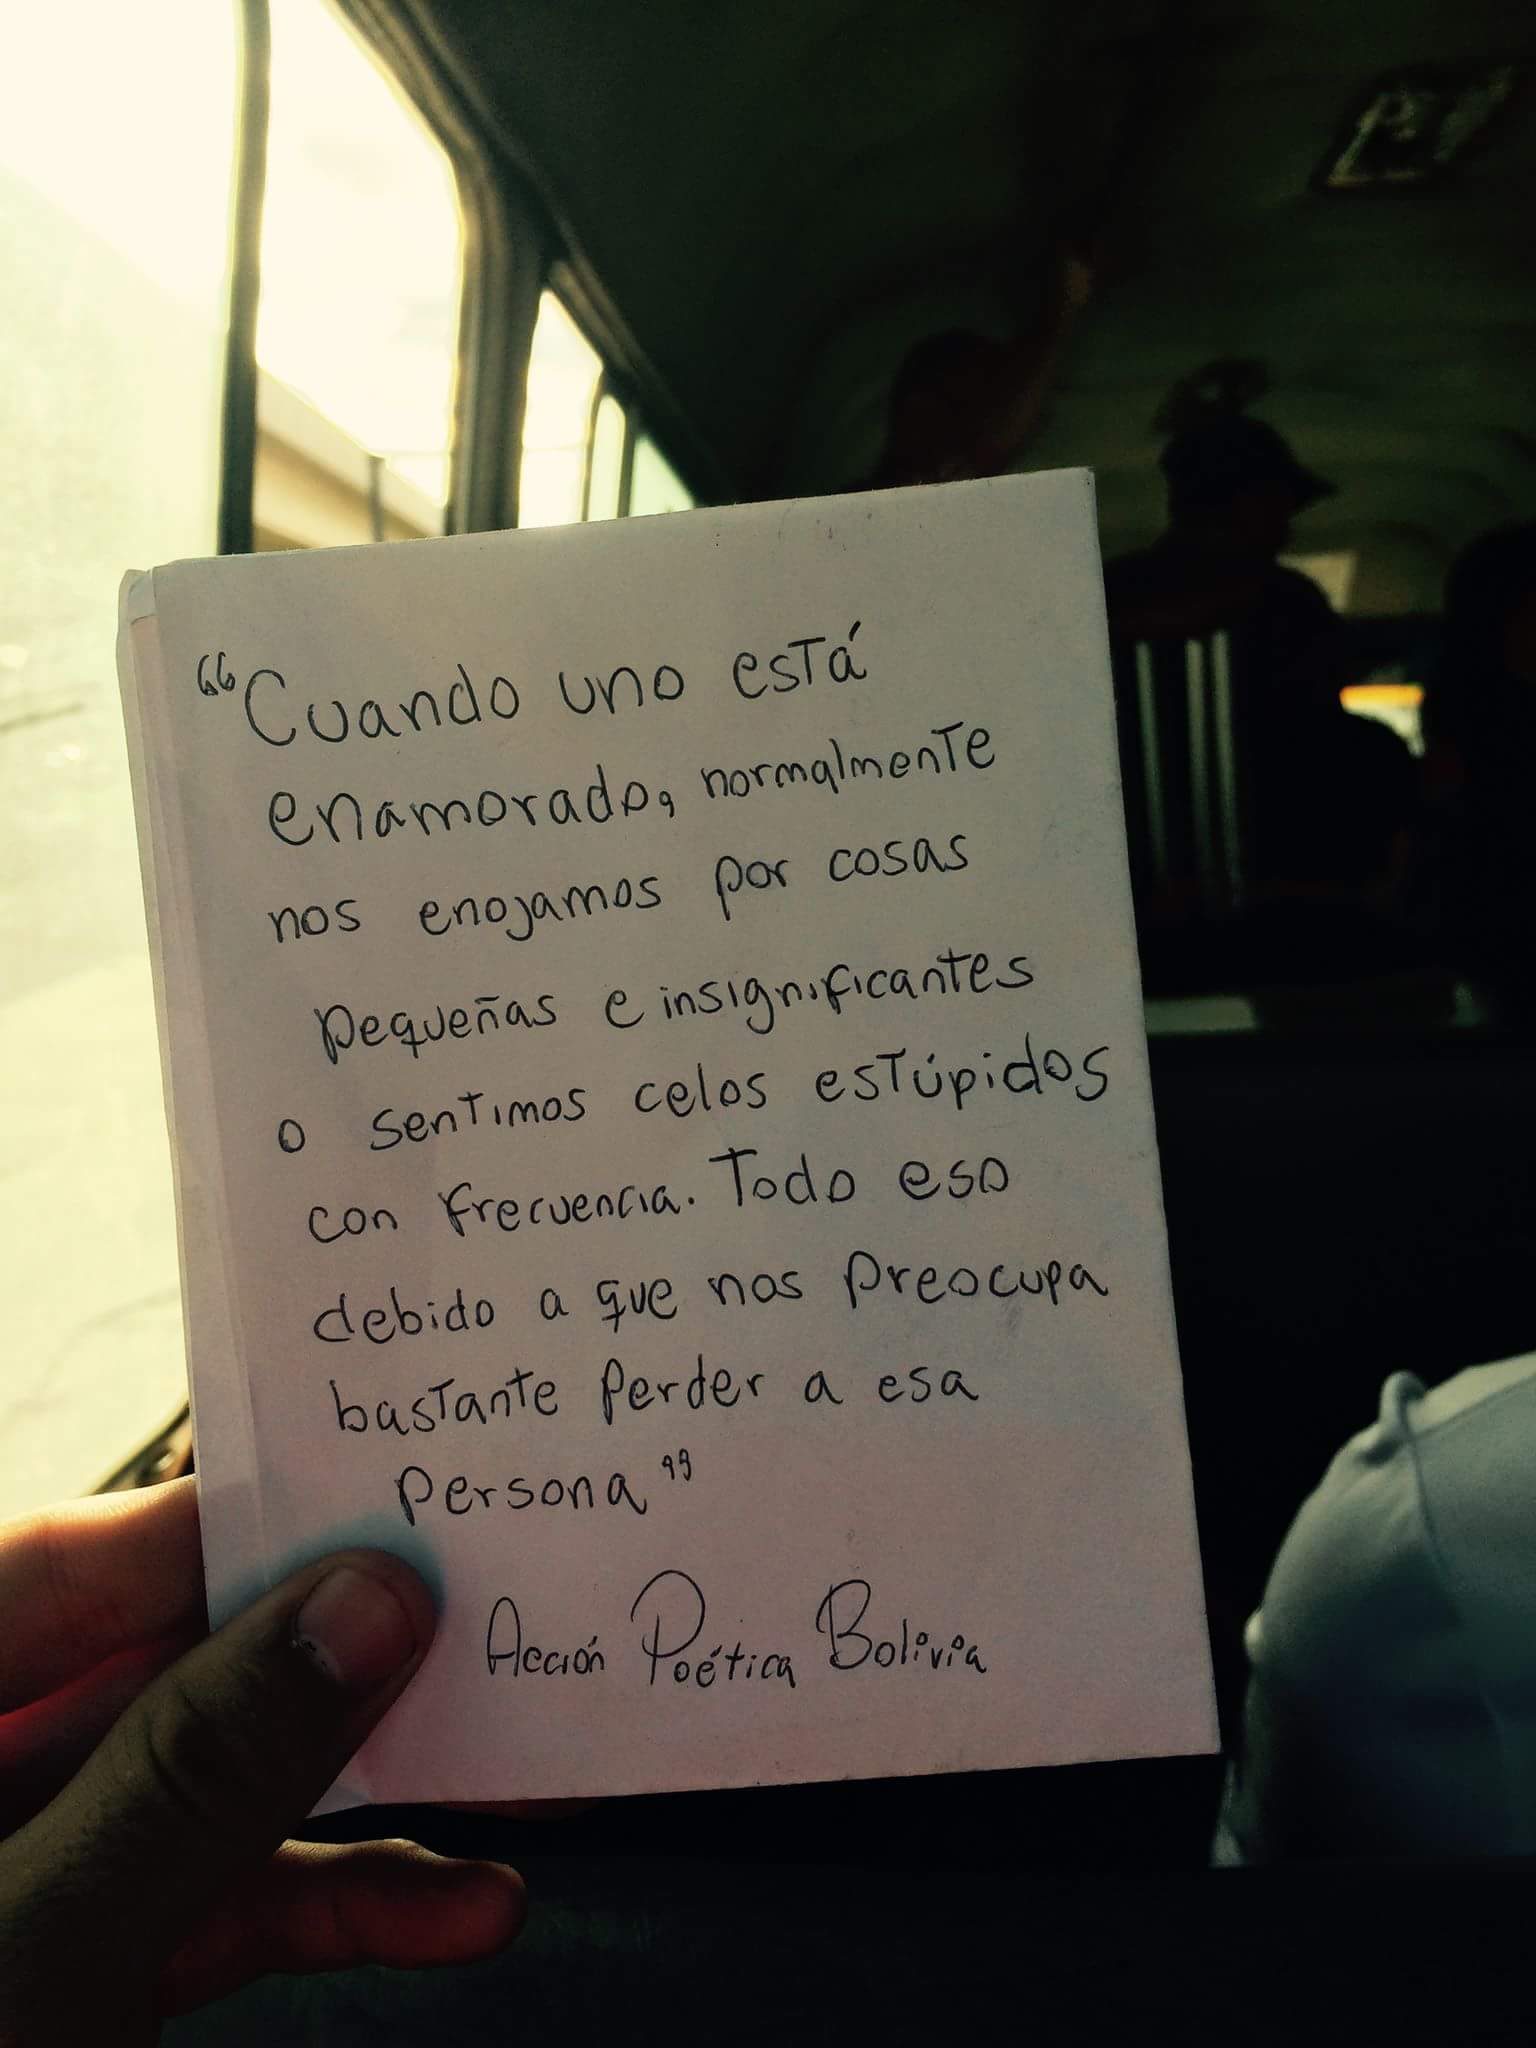 “Cuando uno está
enamorado, normalmente
nos enojamos por cosas
pequeñas e insignificantes
o sentimos celos estúpidos
con frecuencia. Todo eso
debido a que nos preocupa
bastante perder a esa
persona”
Acción Poética Bolivia